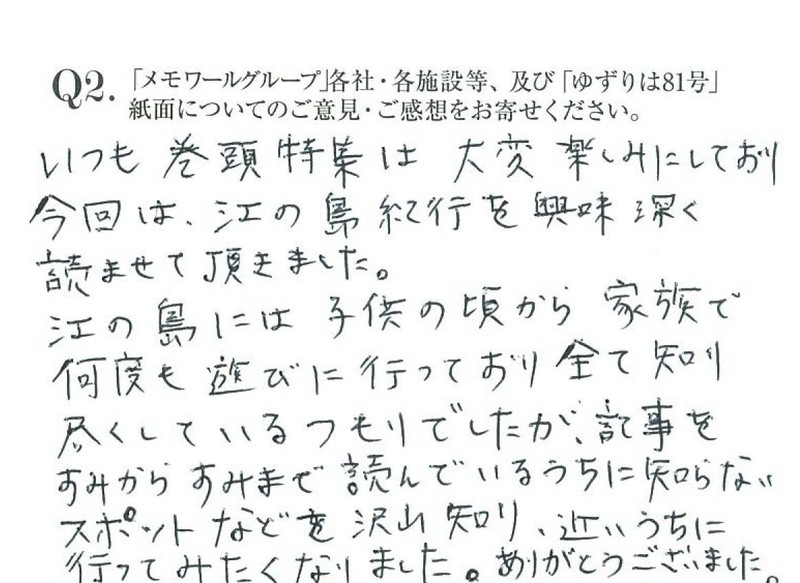 Q2.「メモワールグループ」各社・各施設等、及び「ゆずりは81号」
紙面についてのご意見・ご感想をお寄せください。
いつも 巻頭 特集 は 大変 楽しみにしており
今回 は、江の 島 紀行 を 興味 深く
読ませて 頂きました。
江の 島 には 子供 の 頃から 家族で
何度も 遊びに 行っており 全て 知り
尽くしているつもりでしたが、記事を
すみからすみまで 読んでいるうちに知らない
スポットなどを 沢山 知り、近いうちに
行ってみたくなりました。ありがとうございました。